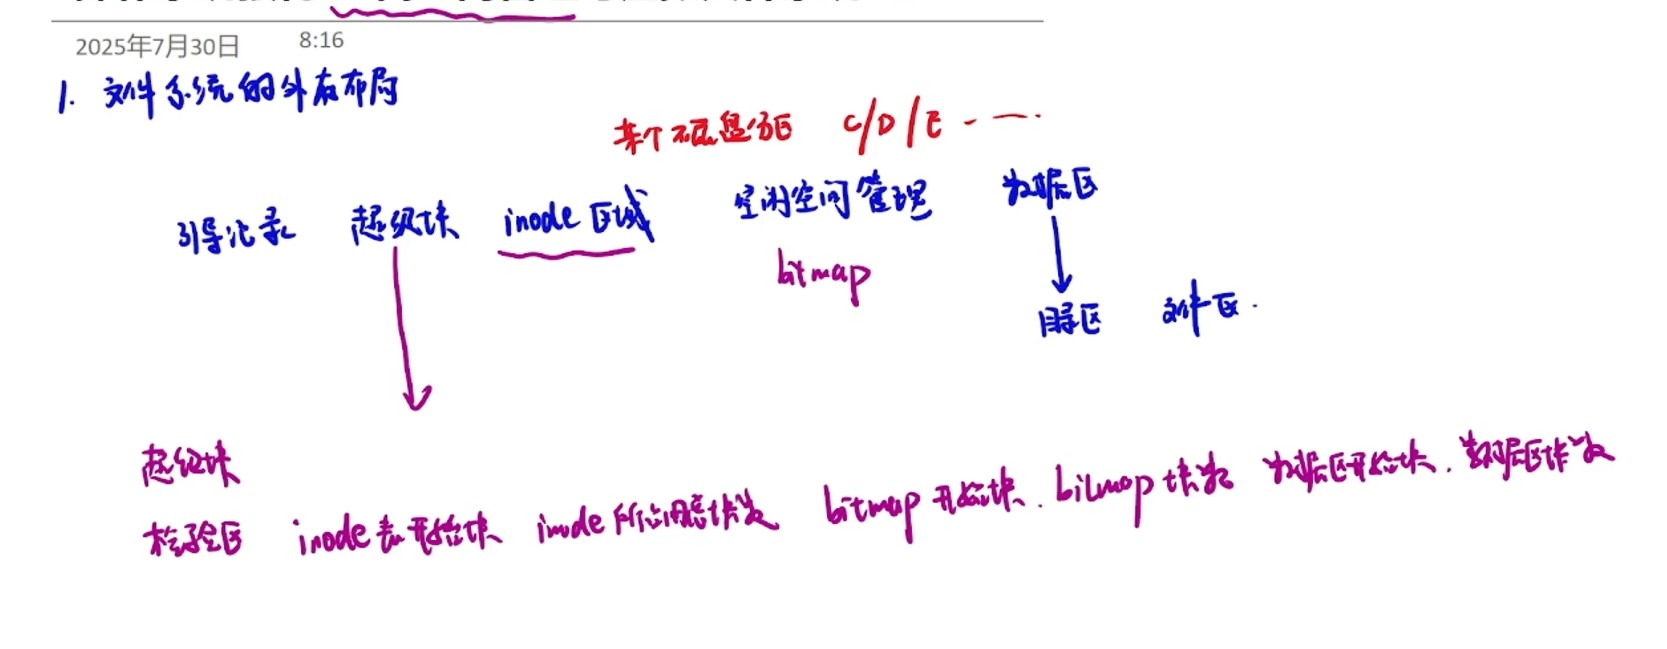 2025年7月30日 8:16
1. 文件系统的外存布局
某个磁盘分区 C/D/E - —·
引导记录 超级块 inode 区域 空闲空间管理 数据区
bitmap
目录区 文件区.
超级块
校验区 inode表开始块 inode所占用总块数 bitmap 开始块. bitmap 块数 数据区开始块. 数据区块数